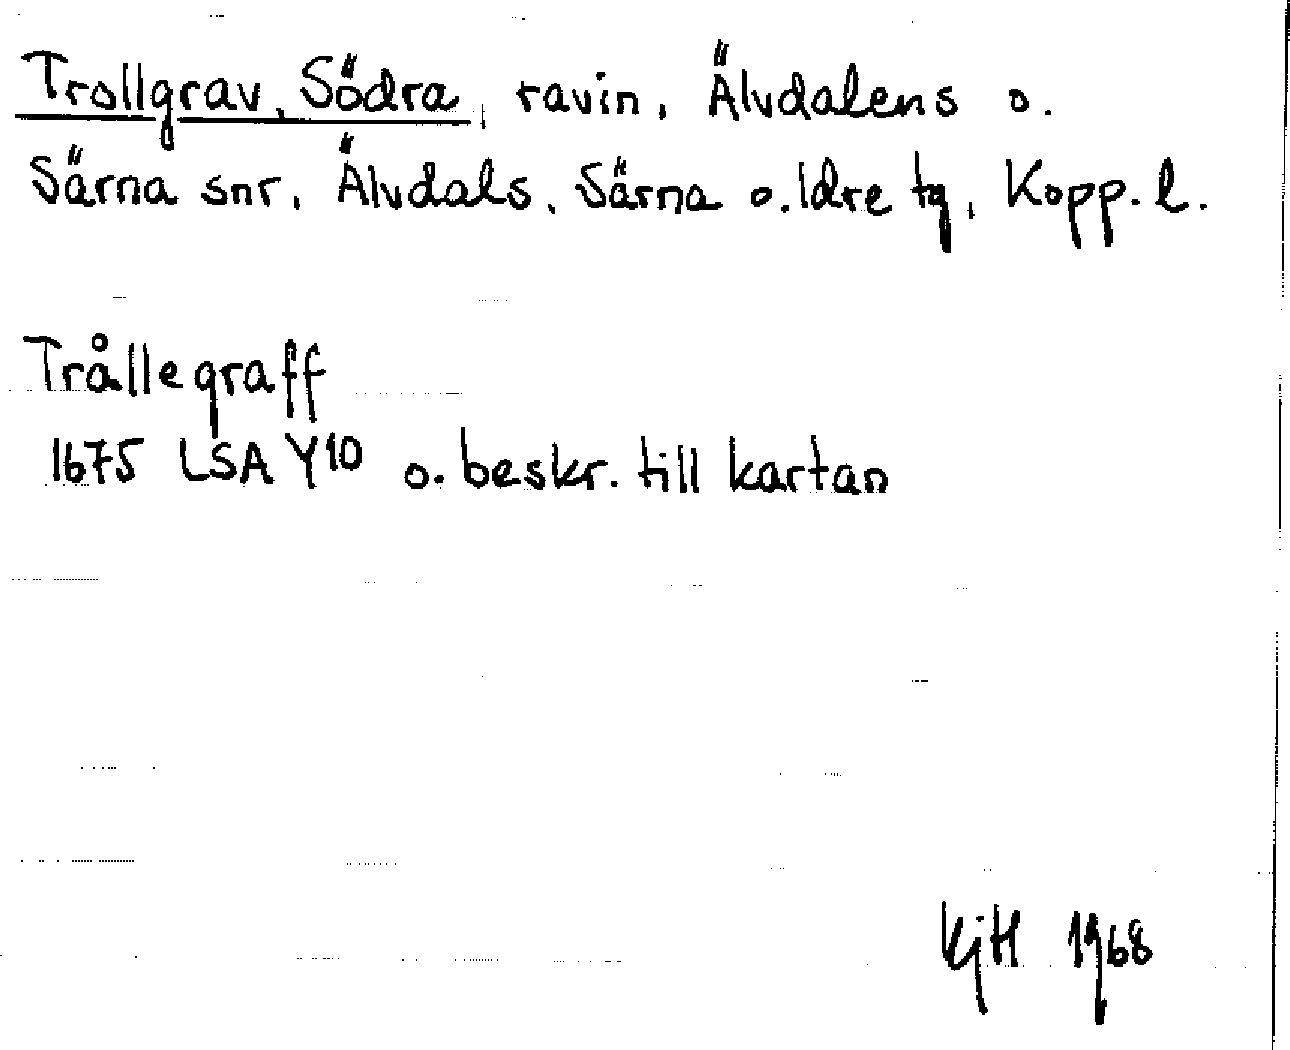 Trollgrav, Södra, ravin, Älvdalens o.
Särna snr, Älvdals, Särna o. Idre tg, Kopp. l.
Trållegraff
1675 LSA Y10 o. beskr. till kartan
KjH 1968